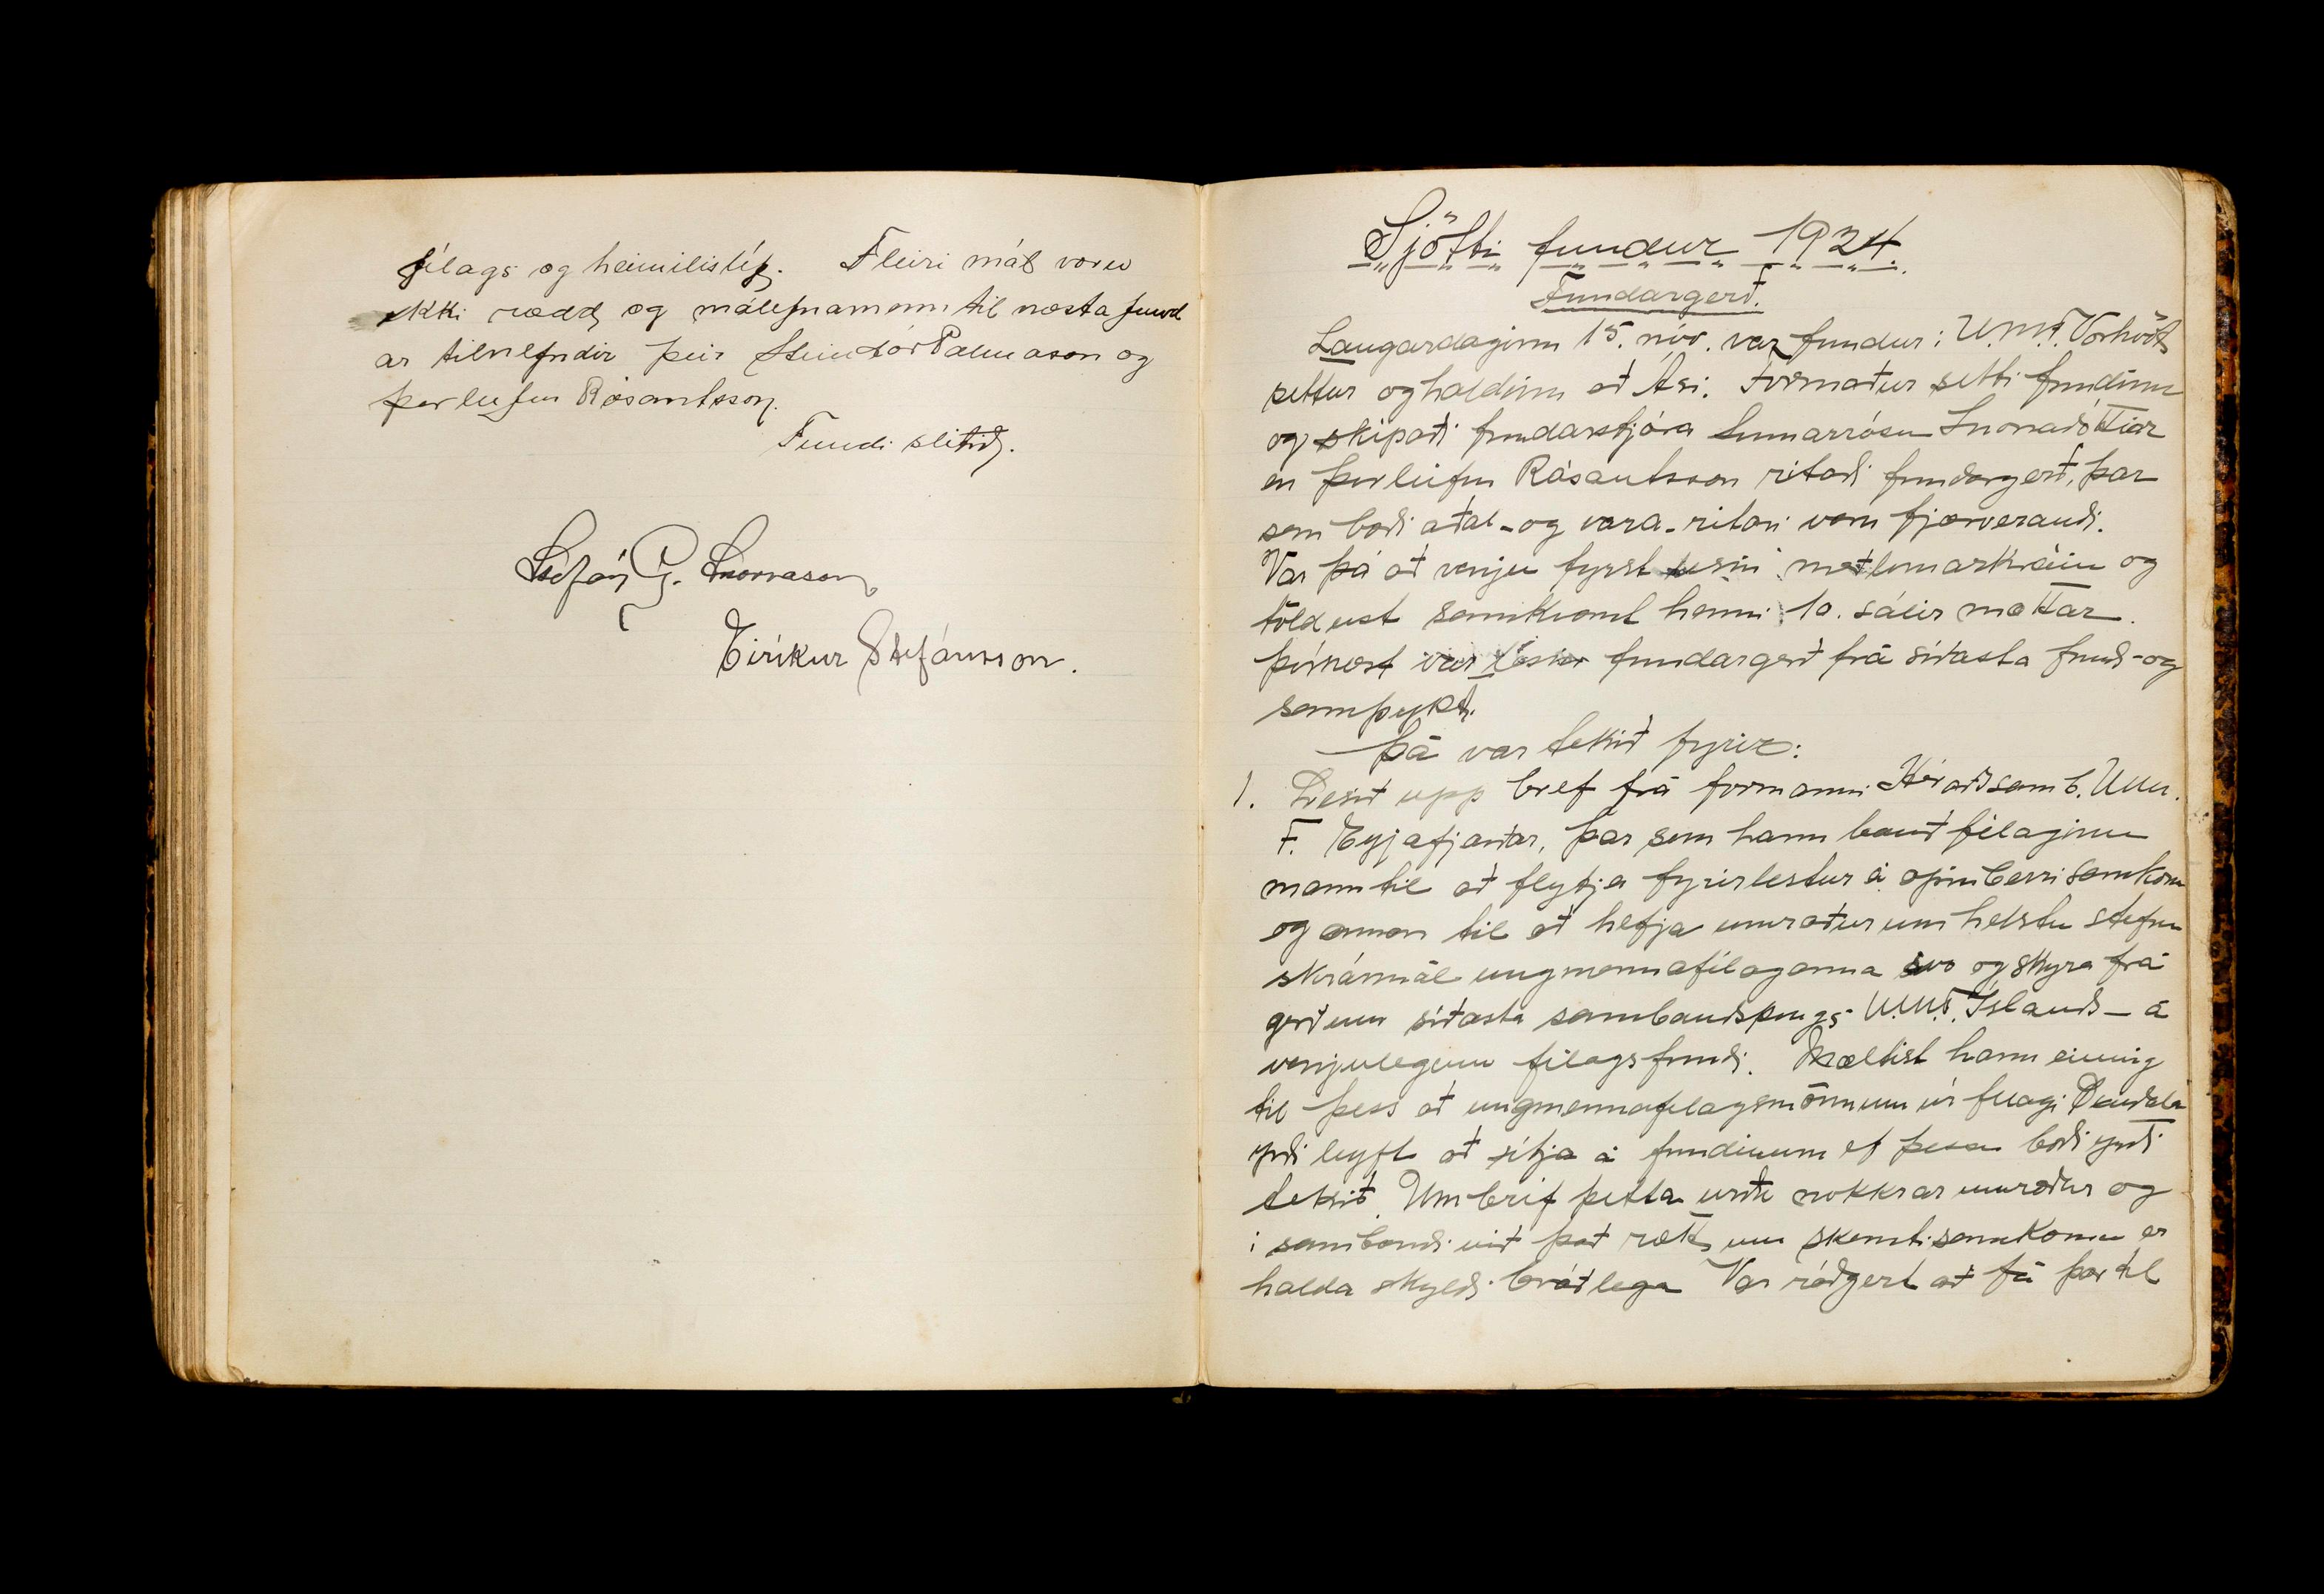 félags og heimilislíf. Fleiri mál voru
ekki rædd, og málefnamenn til næsta fund
ar tilnefndir þeir Steindór Pálmason og
Þorleifur Rósantsson.
Fundi slitið.
Stefán G. Snorrason
Eiríkur Stefánsson.
Sjötti fundur 1924.
Fundargerð.
Laugardaginn 15. nóv. var fundur í U.M.F. Vorhvöt
settur og haldinn að Ási. Formaður setti fundinn
og skipaði fundarstjóra Sumarrósu Snorradóttiar
en Þorleifur Rósantsson ritaði fundargerð, þar
sem bæði aðal-og vara-ritari voru fjærverandi.
Var þá að venju fyrst lesin meðlimaskráin og
töldust samkvæmt henni 10. sálir mættar.
Þvínæst var lesin fundargerð frá síðasta fundi og
samþykt.
Þá var tekið fyrir:
1. Lesið upp bréf frá formanni Héraðssamb. Um.
F. Eyjafjarðar, þar sem hann bauð félaginu
mann til að flytja fyrirlestur á opinberri samkom
og annan til að hefja umræður um helstu stefnu
skrármál ungmennafélaganna svo og skýra frá
gerðum síðasta sambandsþings U.M.F. Íslands - á
venjulegum félagsfundi. Mæltist hann einnig
til þess að ungmennafélagsmönnum úr félagi
yrði leyft að sitja á fundinum ef þessu boði yrði
tekið. Um bréf þetta urðu nokkrar umræður og
í sambandi við það rætt um skemtisamkomu er
halda skyldi bráðlega Var ráðgert að fá þar til